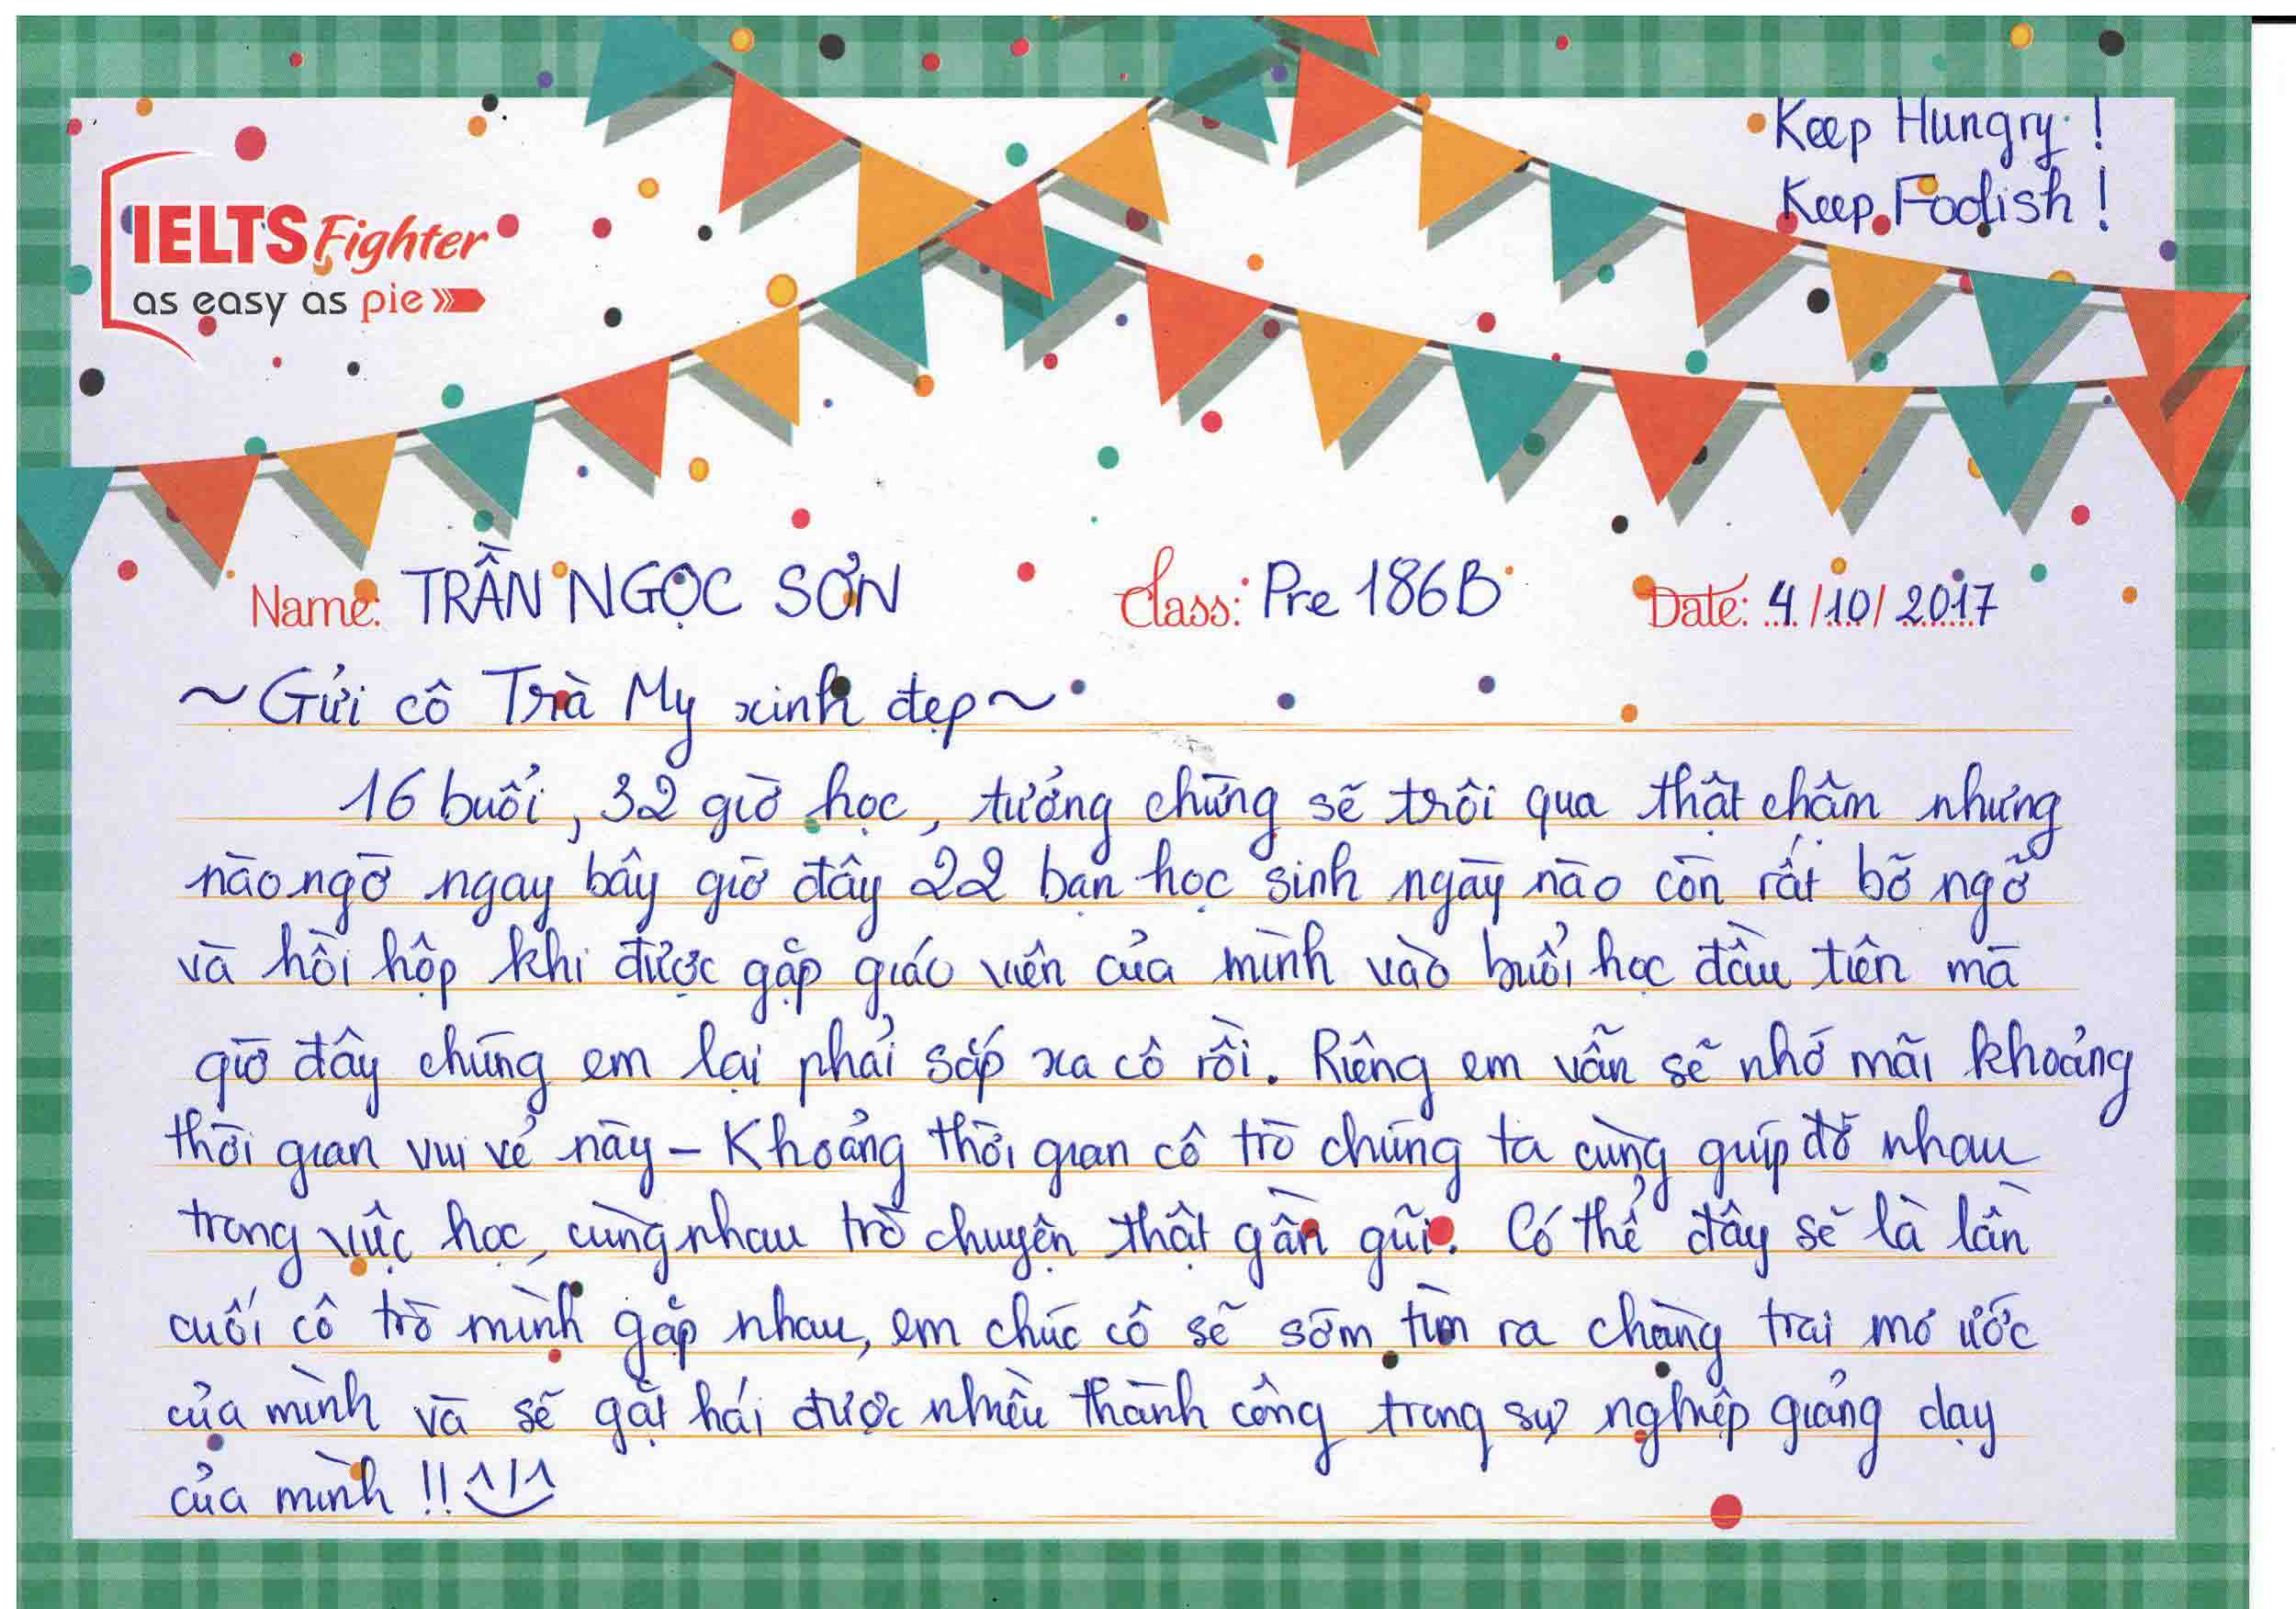 Keep Hungry !
Keep Foolish !
IELTS Fighter
as easy as pie
Name: TRẦN NGỌC SƠN Class: Pre 186B Date: 4/10/2017
~ Gửi cô Trà My xinh đẹp ~
16 buổi, 32 giờ học, tưởng chừng sẽ trôi qua thật chậm nhưng
nào ngờ ngay bây giờ đây 22 bạn học sinh ngày nào còn rất bỡ ngỡ
và hồi hộp khi được gặp giáo viên của mình vào buổi học đầu tiên mà
giờ đây chúng em lại phải sắp xa cô rồi. Riêng em vẫn sẽ nhớ mãi khoảng
thời gian vui vẻ này - Khoảng thời gian cô trò chúng ta cùng giúp đỡ nhau
trong việc học, cùng nhau trò chuyện thật gần gũi. Có thể đây sẽ là lần
cuối cô trò mình gặp nhau, em chúc cô sẽ sớm tìm ra chàng trai mơ ước
của mình và sẽ gặt hái được nhiều thành công trong sự nghiệp giảng dạy
của mình !!